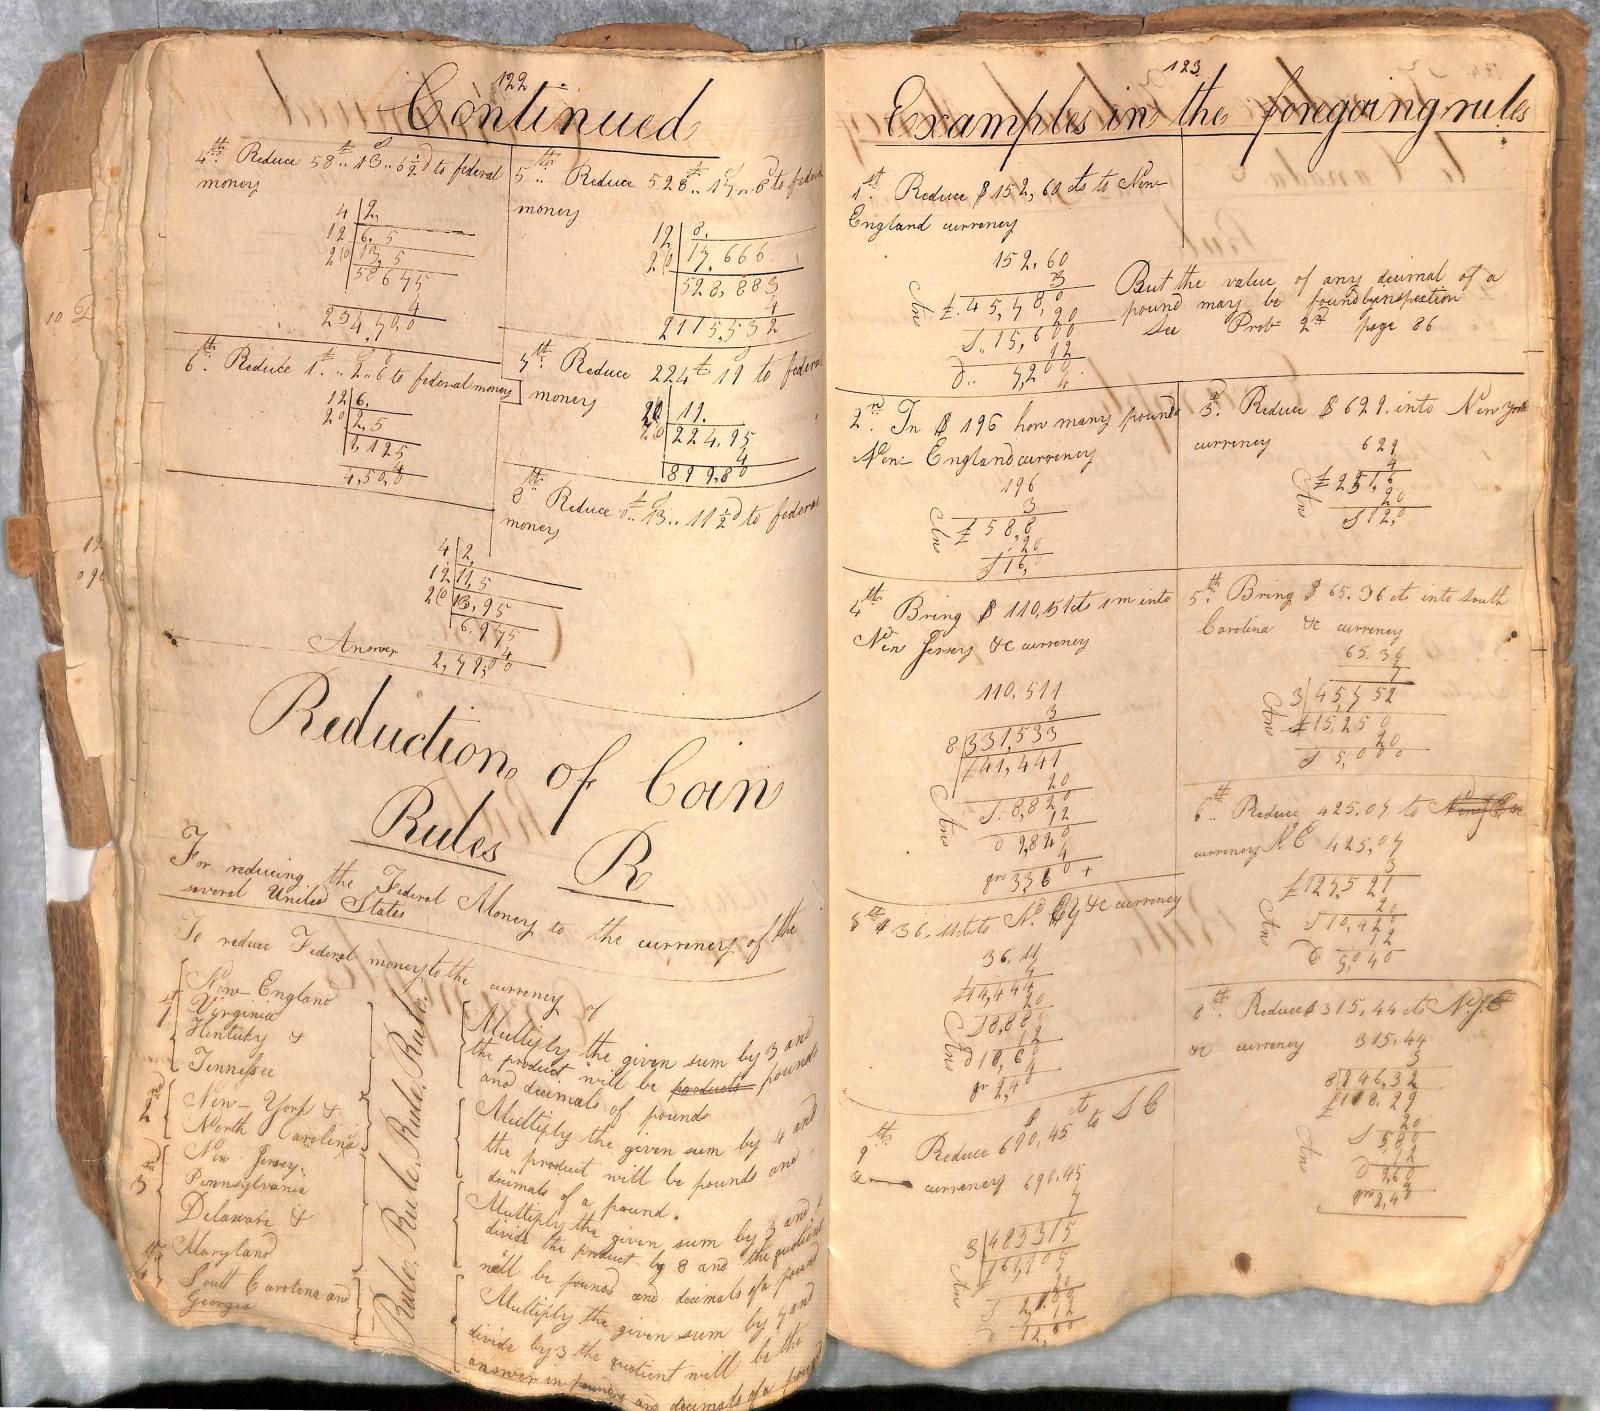 122
Continued
4th Reduce 58£..13..6½d to federal
money
4 | 2,
12 | 6,5
20 | 13,5
58675
4
234,700
5th Reduce 528£..17..8d to feder
money
12 | 8.
20 | 17,666
528,883
4
2115,532
6th Reduce 1£..2s..6d to federal money
12 | 6,
20 | 2,5
1,125
4
4,500
7th Reduce 224£ 19 to federa
money
20 | 19.
224,95
4
899,80
8th Reduce 0£..13s..11½d to federa
money
4 | 2,
12 | 11,5
20 | 13,95
6,975
4
Answer 2,79,00
Reduction of Coin
Rules R
For reducing the Federal Money to the currency of the
several United States
To reduce Federal money to the currency of
1st
New-England
Virginia
Kentucky &
Tennessee
Rule.
Multiply the given sum by 3 and
the product will be products pounds
and decimals of pounds
2nd
New-York &
North Carolina
Rule.
Multiply the given sum by 4 and
the product will be pounds and
decimals of a pound.
3
New Jersey,
Pennsylvania
Delaware &
Maryland
Rule.
Multiply the given sum by 3 and
divide the product by 8 and the quotient
will be pounds and decimals of a pound
4th
South Carolina and
Georgia
Rule,
Multiply the given sum by 7 and
divide by 3 the quotient will be the
answer in pounds and decimals of a pound
123
Examples in the foregoing rules
1st Reduce $152,60 cts to New-
England currency
152,60
3
Ans £.45,780
20
S..15,600
12
d.. 7,200
4
But the value of any decimal of a
pound may be found by inspection
See Prob 2nd page 86
2nd In $196 how many pounds
New England currency
196
3
Ans £58,8
20
S16,
3d Reduce $629. into New York
currency
629
4
Ans £251,6
20
S12,0
4th Bring $110,51cts 1m into
New Jersey &c currency
110,511
3
8 | 331,533
£41,441
20
Ans S.8,820
12
d 9,840
4
qrs 3360 +
5th Bring $65.36 cts into South
Carolina &c currency
65.36
7
3 | 45,752
Ans £15,250
20
S 5,000
6th Reduce 425.07 to
currency N.C 425,07
3
£127,521
20
Ans S10,420
12
d 5,040
$36,11cts to N. &c currency
36.11
4
£14,444
20
Ans S8,880
12
d10,60
4
qr 2,40
8th Reduce $315,44 cts N.J.
&c currency 315,44
3
8 | 946,32
£118,29
20
Ans S 5,80
12
d 9,60
qrs 2,40
9th Reduce $690,45 cts to SC
&c currency 690,45
7
3 | 483315
161105
20
Ans
12